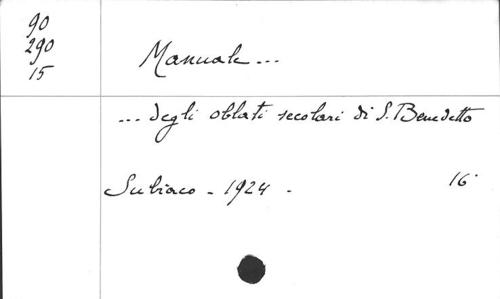 90
290
15
Manuale...
... degli oblati secolari di S. Benedetto
Subiaco - 1924 -
16°